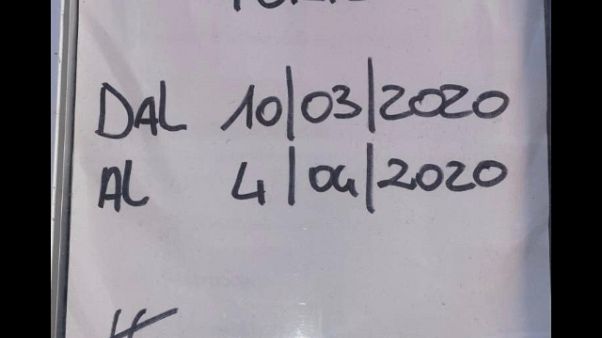 DAL 10|03|2020
AL 4|04|2020